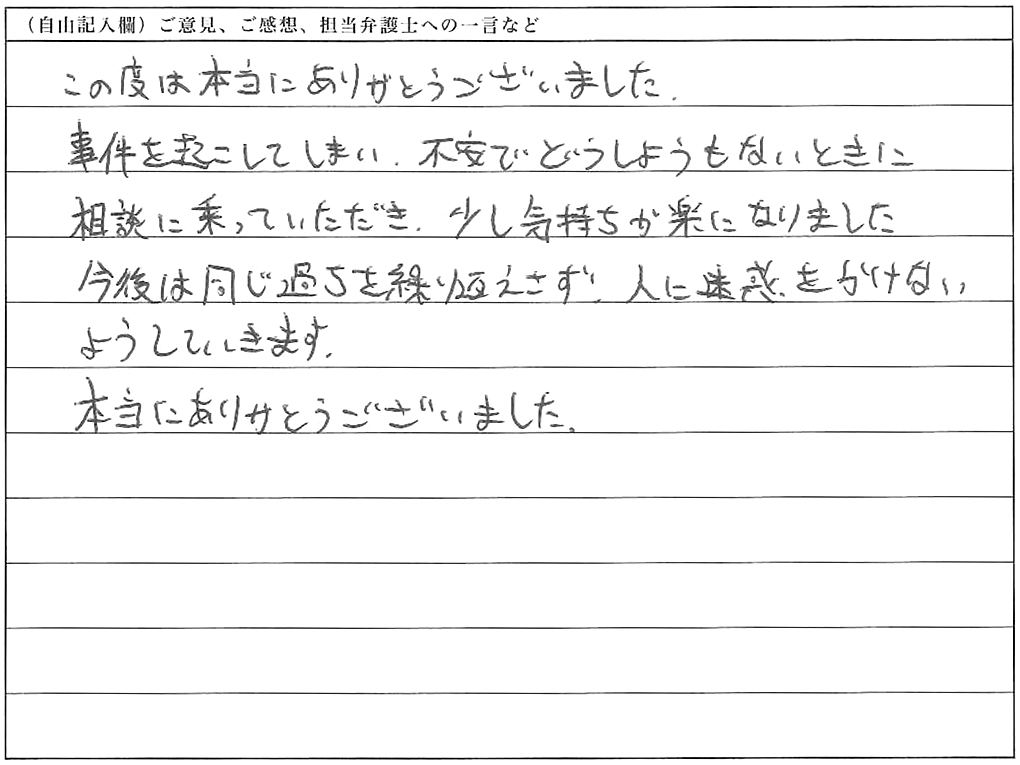 （自由記入欄）ご意見、ご感想、担当弁護士への一言など
この度は本当にありがとうございました.
事件を起こしてしまい、不安でどうしようもないときに
相談に乗っていただき、少し気持ちが楽になりました
今後は同じ過ちを繰り返えさず、人に迷惑をかけない
ようしていきます.
本当にありがとうございました。